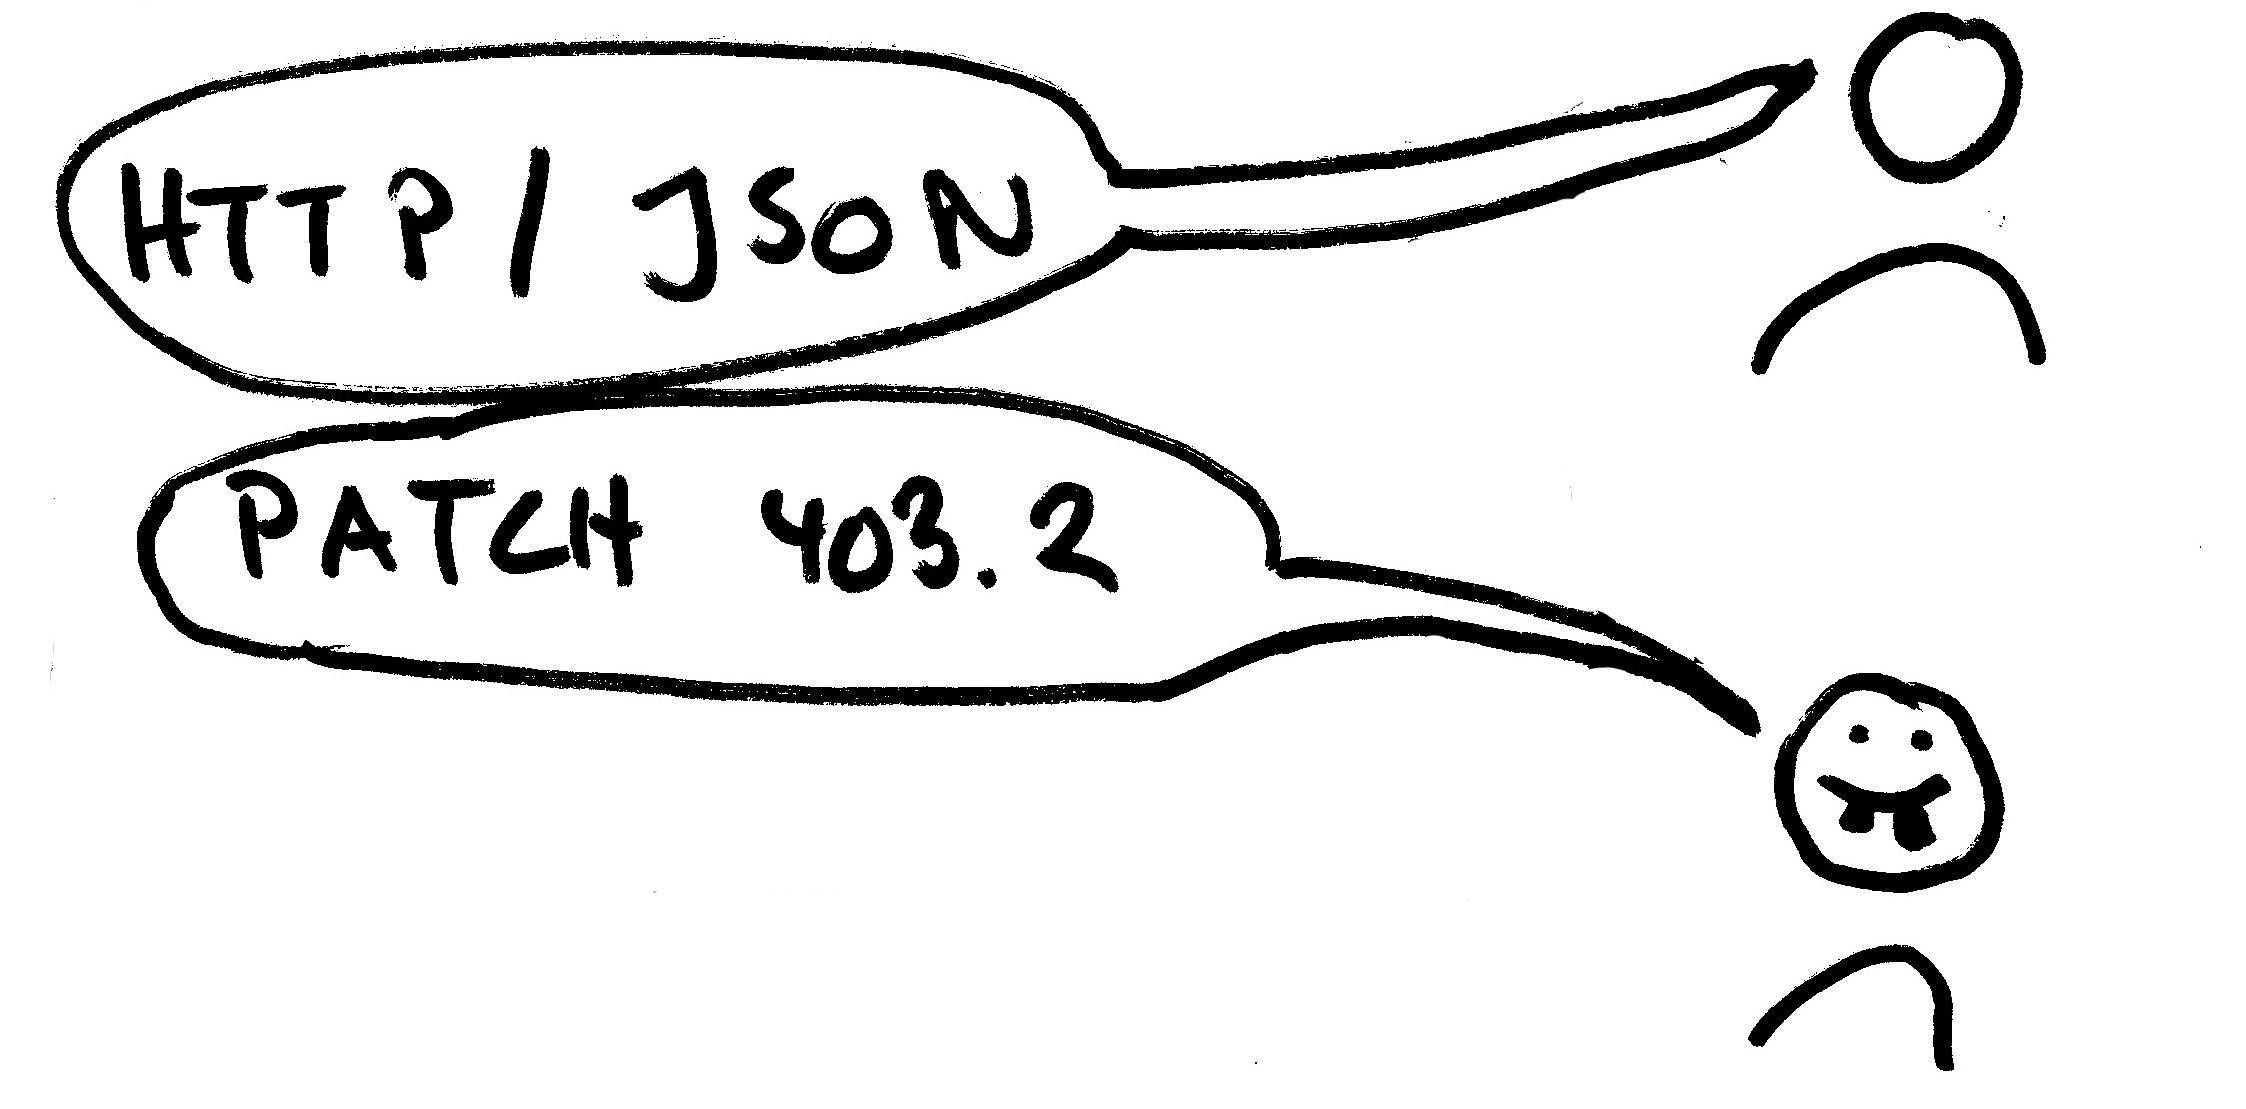 HTTP/ JSON
PATCH 403.2